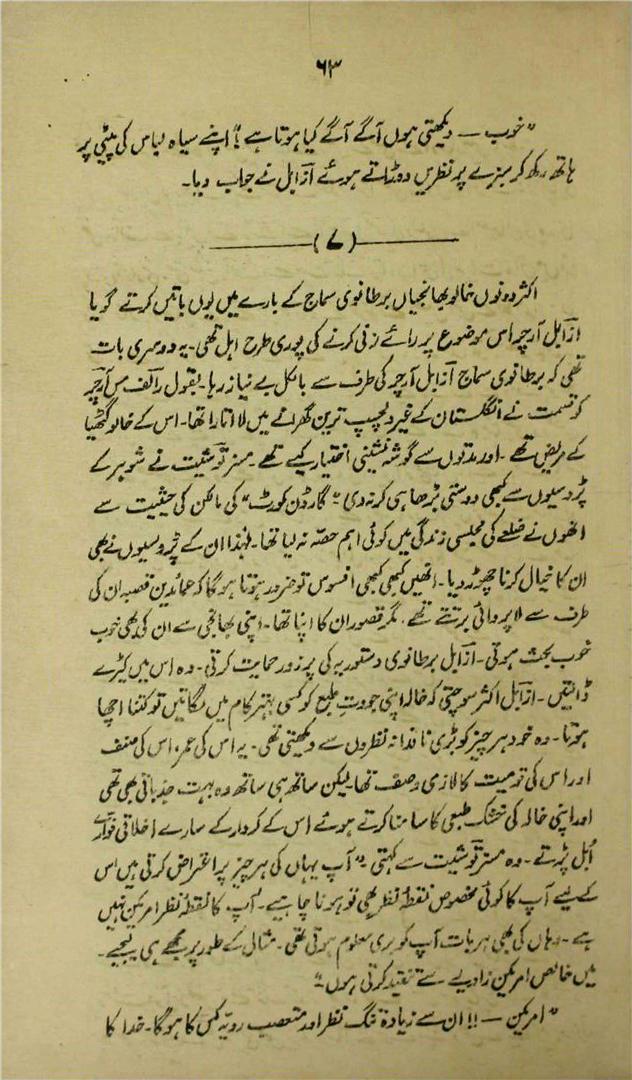 ۶۳
”خوب — دیکھتی ہوں آگے آگے کیا ہوتا ہے!“ اپنے سیاہ لباس کی پیٹی پر
ہاتھ رکھ کر سبزے پر نظریں دوڑاتے ہوئے ازابل نے جواب دیا۔
(۷)
اکثر دونوں خالہ بھانجیاں برطانوی سماج کے بارے میں یوں باتیں کرتے گویا
ازابل آرچر اس موضوع پر رائے زنی کرنے کی پوری طرح اہل تھی۔ یہ دوسری بات
تھی کہ برطانوی سماج ازابل آرچر کی طرف سے بالکل بے نیاز رہا۔ بقول رالف مس آرچر
کو قسمت نے انگلستان کے غیر دلچسپ ترین گھرانے میں لا اتارا تھا۔ اس کے خالو گٹھیا
کے مریض تھے۔ اور مدتوں سے گوشہ نشینی اختیار کیے تھے۔ مسز توشیت نے شوہر کے
پڑوسیوں سے کبھی دوستی بڑھا ہی کر نہ دی۔ ”گارڈن کورٹ“ کی مالکن کی حیثیت سے
انھوں نے ضلعے کی مجلسی زندگی میں کوئی اہم حصہ نہ لیا تھا۔ لہٰذا ان کے پڑوسیوں نے بھی
ان کا خیال کرنا چھوڑ دیا۔ انھیں کبھی کبھی افسوس تو ضرور ہوتا ہوگا کہ عمائدین قصبہ ان کی
طرف سے لاپروائی برتتے تھے۔ مگر قصور ان کا اپنا تھا۔ اپنی بھانجی سے ان کی بھی خوب
خوب بحث ہوتی۔ ازابل برطانوی دستوریہ کی پرزور حمایت کرتی۔ وہ اس میں کیڑے
ڈالتیں۔ ازابل اکثر سوچتی کہ خالہ اپنی جودتِ طبع کو کسی بہتر کام میں لگاتیں تو کتنا اچھا
ہوتا۔ وہ خود ہر چیز کو بڑی ناقدانہ نظروں سے دیکھتی تھی۔ یہ اس کی عمر، اس کی صنف
اور اس کی قومیت کا لازمی وصف تھا۔ لیکن ساتھ ہی ساتھ وہ بہت جذباتی بھی تھی
اور اپنی خالہ کی خشک طبعی کا سامنا کرتے ہوئے اس کے کردار کے سارے اخلاقی فوارے
اُبل پڑتے۔ وہ مسز توشیت سے کہتی۔ ”آپ یہاں کی ہر چیز پر اعتراض کرتی ہیں اس
کے لیے آپ کا کوئی مخصوص نقطۂ نظر بھی تو ہونا چاہیے۔ آپ کا نقطۂ نظر امریکن نہیں
ہے۔ وہاں کی بھی ہر بات آپ کو بری معلوم ہوتی تھی۔ مثال کے طور پر مجھے ہی لیجیے۔
میں خالص امریکن زاویے سے تنقید کرتی ہوں۔“
”امریکن —!! ان سے زیادہ تنگ نظر اور متعصب رویہ کس کا ہوگا۔ خدا کا